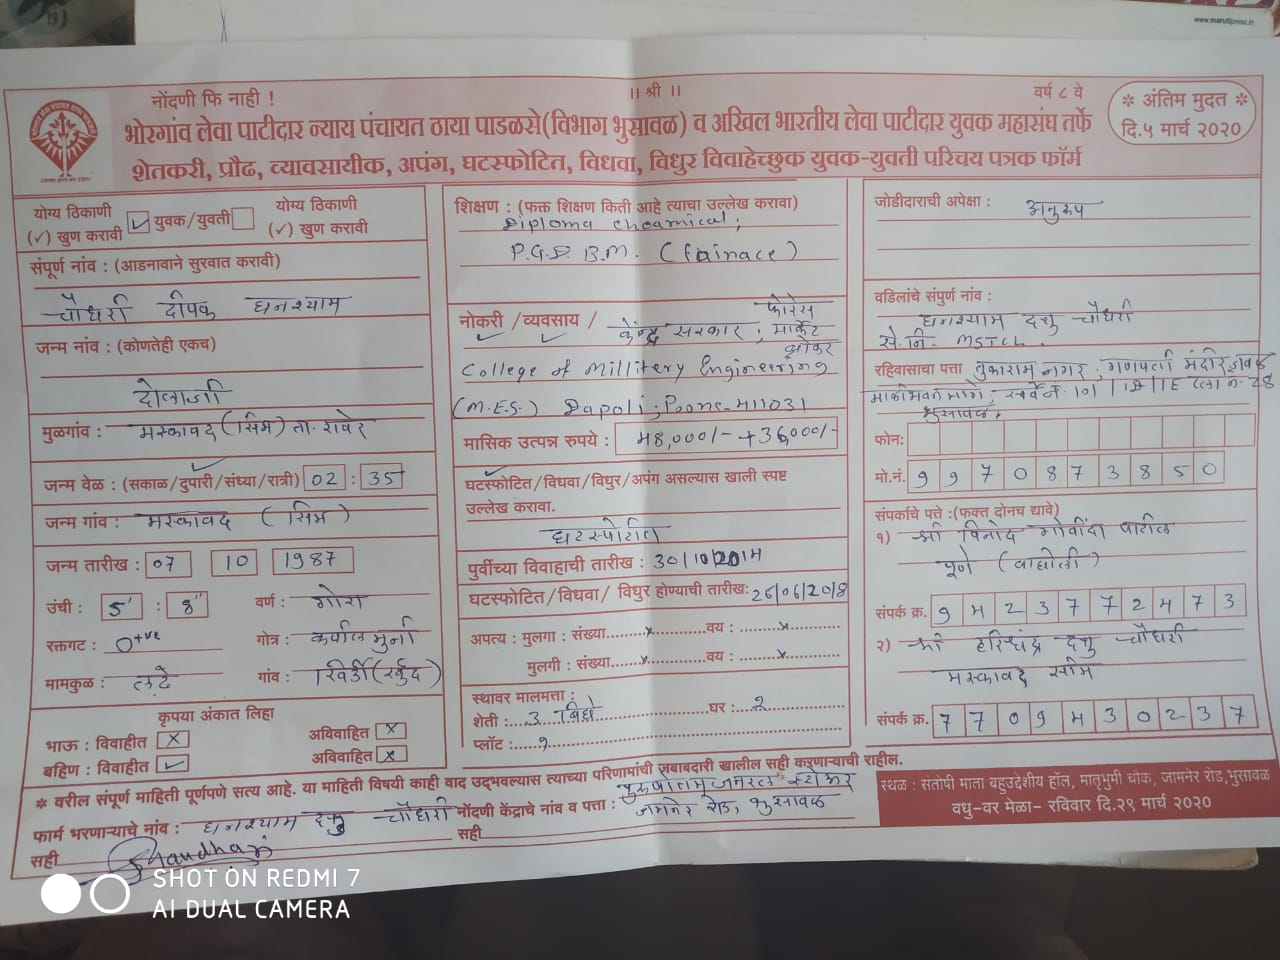 www.marutipress.in
नोंदणी फि नाही !
॥ श्री ॥
वर्ष ८ वे
* अंतिम मुदत *
दि.५ मार्च २०२०
भोरगांव लेवा पाटीदार न्याय पंचायत ठाया पाडळसे(विभाग भुसावळ) व अखिल भारतीय लेवा पाटीदार युवक महासंघ तर्फे
शेतकरी, प्रौढ, व्यावसायीक, अपंग, घटस्फोटित, विधवा, विधुर विवाहेच्छुक युवक-युवती परिचय पत्रक फॉर्म
योग्य ठिकाणी
(✓) खुण करावी
✓ युवक/युवती
योग्य ठिकाणी
(✓) खुण करावी
संपूर्ण नांव : (आडनावाने सुरवात करावी)
चौधरी दीपक घनश्याम
जन्म नांव : (कोणतेही एकच)
दोलाजी
मुळगांव : मस्कावद (सिम) ता. रावेर
जन्म वेळ : (सकाळ/दुपारी/संध्या/रात्री) 02 : 35
जन्म गांव : मस्कावद (सिम)
जन्म तारीख : 07 10 1987
उंची : 5' : 8" वर्ण : गोरा
रक्तगट : O+ve गोत्र : कपील मुनी
मामकुळ : लढे गांव :
कृपया अंकात लिहा
भाऊ : विवाहीत x अविवाहित x
बहिण : विवाहीत ✓ अविवाहित x
शिक्षण : (फक्त शिक्षण किती आहे त्याचा उल्लेख करावा)
Diploma cheamical,
P.G.D.B.M. (fainace)
नोकरी / व्यवसाय / केंद्र सरकार, फोरेस मार्केट ब्रोकर
College of Millitery Engineering
(M.E.S.) Dapoli, Poone-411031
मासिक उत्पन्न रुपये : 48,000/- +36,000/-
घटस्फोटित/विधवा/विधुर/अपंग असल्यास खाली स्पष्ट
उल्लेख करावा.
घटस्पोटीत
पुर्वीच्या विवाहाची तारीख : 30/10/2014
घटस्फोटित/विधवा/ विधुर होण्याची तारीख: 26/06/2018
अपत्य : मुलगा : संख्या......x......वय : ......x......
मुलगी : संख्या......x......वय : ......x......
स्थावर मालमत्ता :
शेती :....3 बिघे......घर : ..2......
प्लॉट :.....१......
जोडीदाराची अपेक्षा : अनुरुप
वडिलांचे संपुर्ण नांव :
घनश्याम दशु चौधरी
से.नि. MSTCL.
रहिवासाचा पत्ता तुकाराम नगर, गणपती मंदीर जवळ
भुसावळ.
फोन:
मो.नं. 9970873850
संपर्काचे पत्ते :(फक्त दोनच द्यावे)
१) श्री विनोद गोवींदा पाटील
पूणे (वाघोली)
संपर्क क्र. 9423772473
२) श्री हरिश्चंद्र दशु चौधरी
मस्कावद सीम
संपर्क क्र. 7709430237
* वरील संपूर्ण माहिती पूर्णपणे सत्य आहे. या माहिती विषयी काही वाद उद्भवल्यास त्याच्या परिणामांची जबाबदारी खालील सही करणेऱ्याची राहील.
फार्म भरणाऱ्याचे नांव : घनश्याम दशु चौधरी नोंदणी केंद्राचे नांव व पत्ता : पुरुषोत्तम जनरल स्टोअर
जामनेर रोड, भुसावळ
सही Chaudhari
सही
स्थळ : संतोषी माता बहुउद्देशीय हॉल, मातृभुमी चौक, जामनेर रोड,भुसावळ
वधु-वर मेळा- रविवार दि.२९ मार्च २०२०
SHOT ON REDMI 7
AI DUAL CAMERA